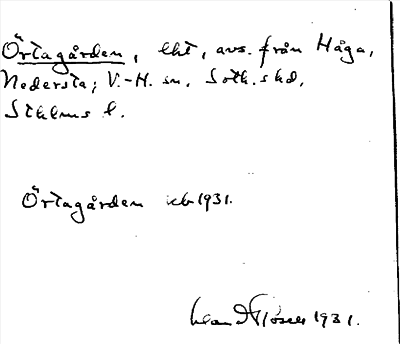 Örtagården, lht, avs. från Håga,
Nedersta; V.-H. sn. Soth. shd,
Sthlms l.
Örtagården jb 1931.
1931.